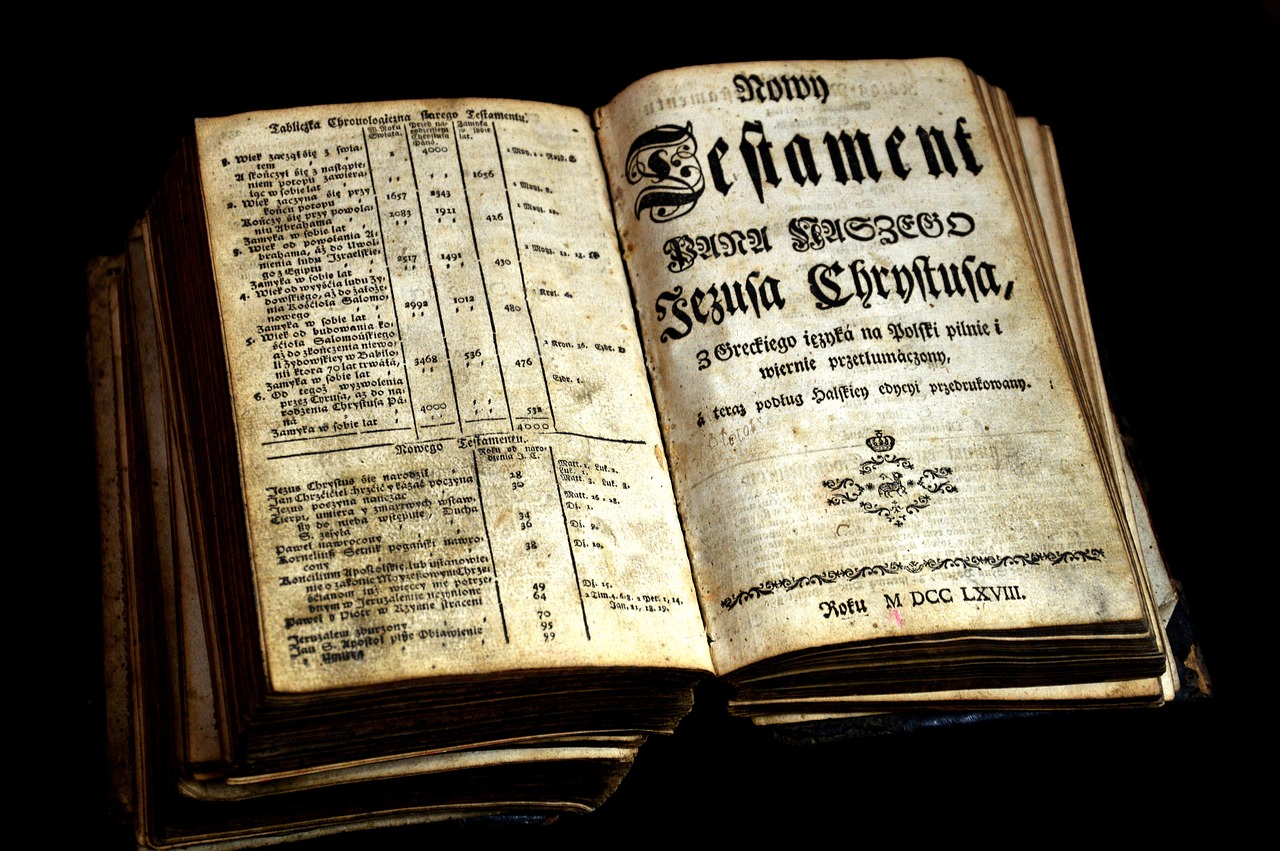 Tabliczka Chronologiczna starego Testamentu.
W Roku Swiata. Przed narodzeniem Chrystusa Pana. Zamyka w sobie lat.
1. Wiek zaczął się z świa-
tem 1 4000
A skończył się z nastąpie-
niem potopu zawiera-
iąc w sobie lat 1656
2. Wiek zaczyna się przy
końcu potopu 1657 2343
Kończy się przy powoła-
niu Abrahama 2083 1921
Zamyka w sobie lat 426
3. Wiek od powołania A-
brahama, aż do Uwol-
nienia ludu Izraelskie-
go z Egiptu 2517 1491
Zamyka w sobie lat 430
4. Wiek od wyyścia ludu Ży-
dowskiego, aż do założe-
nia Kościoła Salomo-
nowego 2992 1012
Zamyka w sobie lat 480
5. Wiek od budowania ko-
ścioła Salomońskiego
aż do zkończenia niewo-
li Żydowskiey w Babilo-
nii ktora 70 lat trwała, 3468 536
Zamyka w sobie lat 476
6. Od tegoż wyzwolenia
przez Cyrusa, aż do na-
rodzenia Chrystusa Pa-
na 4000
Zamyka w sobie lat 532
4000
Nowego Testamentu.
Roku od naro-
dzenia J. C.
Jezus Chrystus się narodził Matt. 1. Luk. 2.
Jan Chrzciciel chrzcić y kazać poczyna 28
Jezus poczyna nauczać 30
Cierpi, umiera y zmartwych wstaw-
szy do nieba wstępuie, Ducha Matt. 26 - 28.
S. zsyła 34 Dz. 1.
Paweł nawrocony 36 Dz. 9.
Korneliusz Setnik pogański nawro-
cony 38 Dz. 10.
Koncilium Apostolskie, lub ustanowie-
nie o zakonie Moyżeszowym Chrze-
ścianom iuż więcey nie potrze-
bnym w Jeruzalemie uczynione 49 Dz. 15.
Paweł y Piotr w Rzymie straceni 64 2 Tim. 4. 6. 8. 2 Pet. 1, 14.
Jan. 21, 18. 19.
Jeruzalem zburzony 70
Jan S. Apostoł pisze Obiawienie 95
y umiera 99
Nowy
Testament
PANA NASZEGO
Jezusa Chrystusa,
z Greckiego ięzyká na Polski pilnie i
wiernie przetłumáczony,
á teraz podług Halskiey edycyi przedrukowany.
Roku M DCC LXVIII.